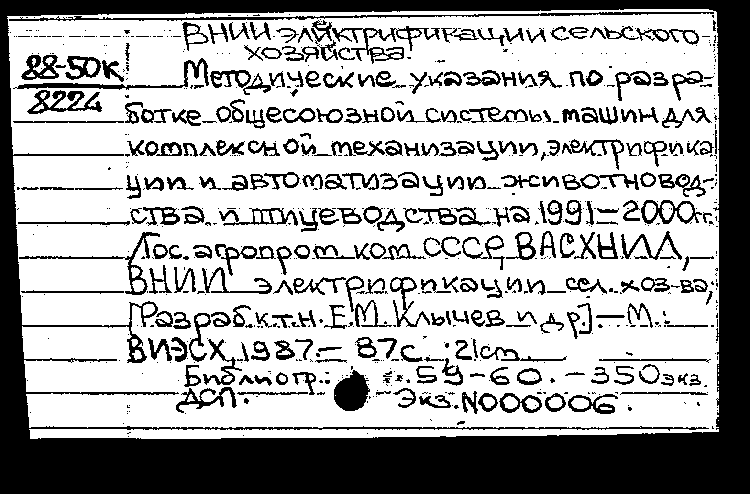 ВНИИ электрификации сельского
хозяйства.
88-50К
8224
Методические указания по разра-
ботке общесоюзной системы машин для
комплексной механизации, электрифика
ции и автоматизации животновод-
ства и птицеводства на 1991-2000гг.
/Гос. агропром. ком. СССР, ВАСХНИЛ,
ВНИИ электрификации сел. хоз-ва;
[Разраб. к.т.н. Е.М. Клычев и др.].-М.:
ВИЭСХ, 1987.- 87с. ; 21см.
Библиогр.: с. 59-60. - 350экз.
ДСП. Экз. N000006.